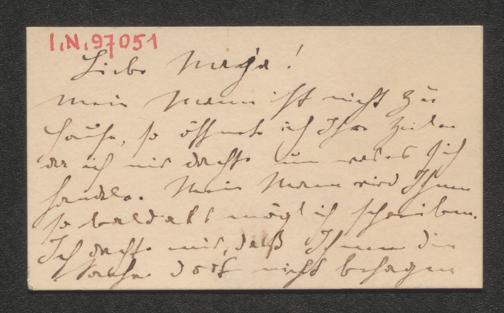 I.N. 97051
Liebe Maja!
mein Mann ist nicht zu
Hause, so öffnete ich Ihre Zeilen
da ich mir dachte um was es sich
handle. Mein Mann wird Ihnen
so bald als möglich schreiben.
Ich dachte mir, daß Ihnen die
Sache dort nicht behagen